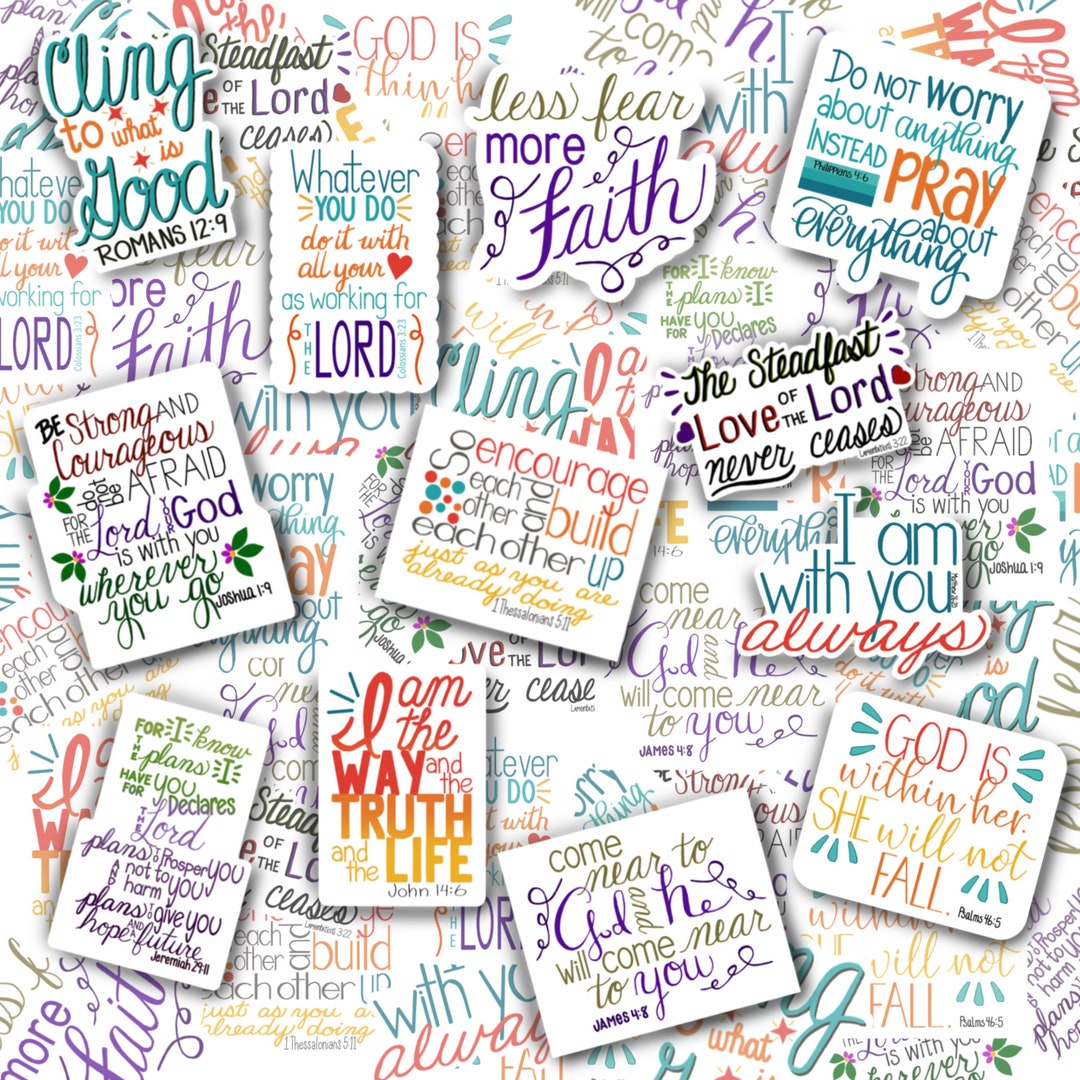 Cling
to what
is
Good
ROMANS 12:9
Whatever
YOU DO
do it with
all your
as working for
THE LORD
Colossians 3:23
less fear
more
Faith
DO NOT WORRY
about anything
INSTEAD
Philippians 4:6
PRAY
about
everything
The Steadfast
Love OF THE Lord
never ceases
Lamentations 3:22
BE Strong AND
Courageous
do not be AFRAID
FOR THE Lord YOUR God
is with you
wherever
you go
Joshua 1:9
So encourage
each other and build
each other up
just as you are
already doing
1 Thessalonians 5:11
I am
with you
Matthew 28:20
always
FOR I know
THE plans I
HAVE FOR YOU
Declares
THE Lord
plans TO Prosper YOU
AND not to harm YOU
plans TO give YOU
hope AND future
Jeremiah 29:11
I am
the
WAY and the
TRUTH
and the LIFE
John 14:6
come
near to
God and he
will come near
to you
JAMES 4:8
GOD IS
within her.
SHE will not
FALL.
Psalms 46:5